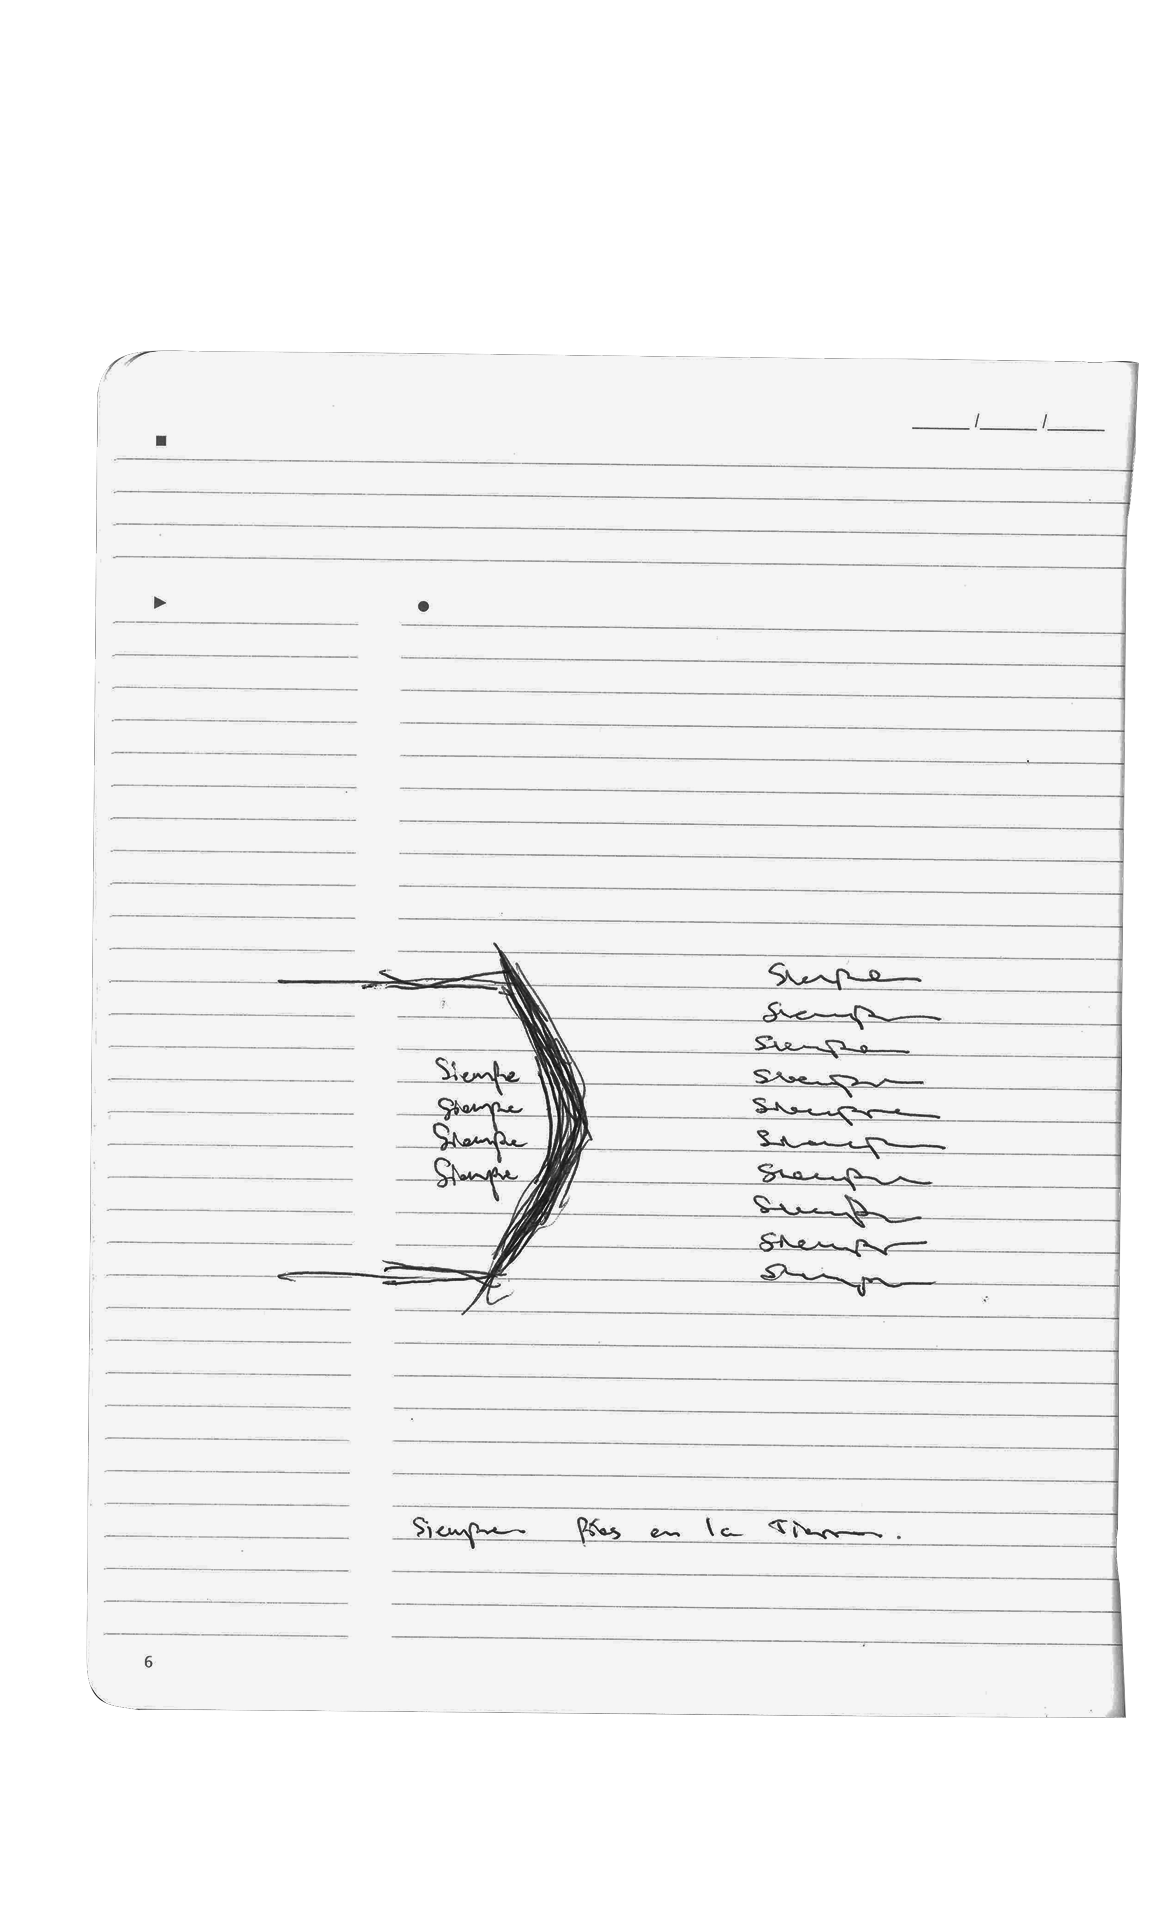 Siempre
Siempre
Siempre
Siempre
Siempre
Siempre
Siempre
Siempre
Siempre
Siempre
Siempre
Siempre
Siempre
Siempre
Siempre Pies en la Tierra.
6